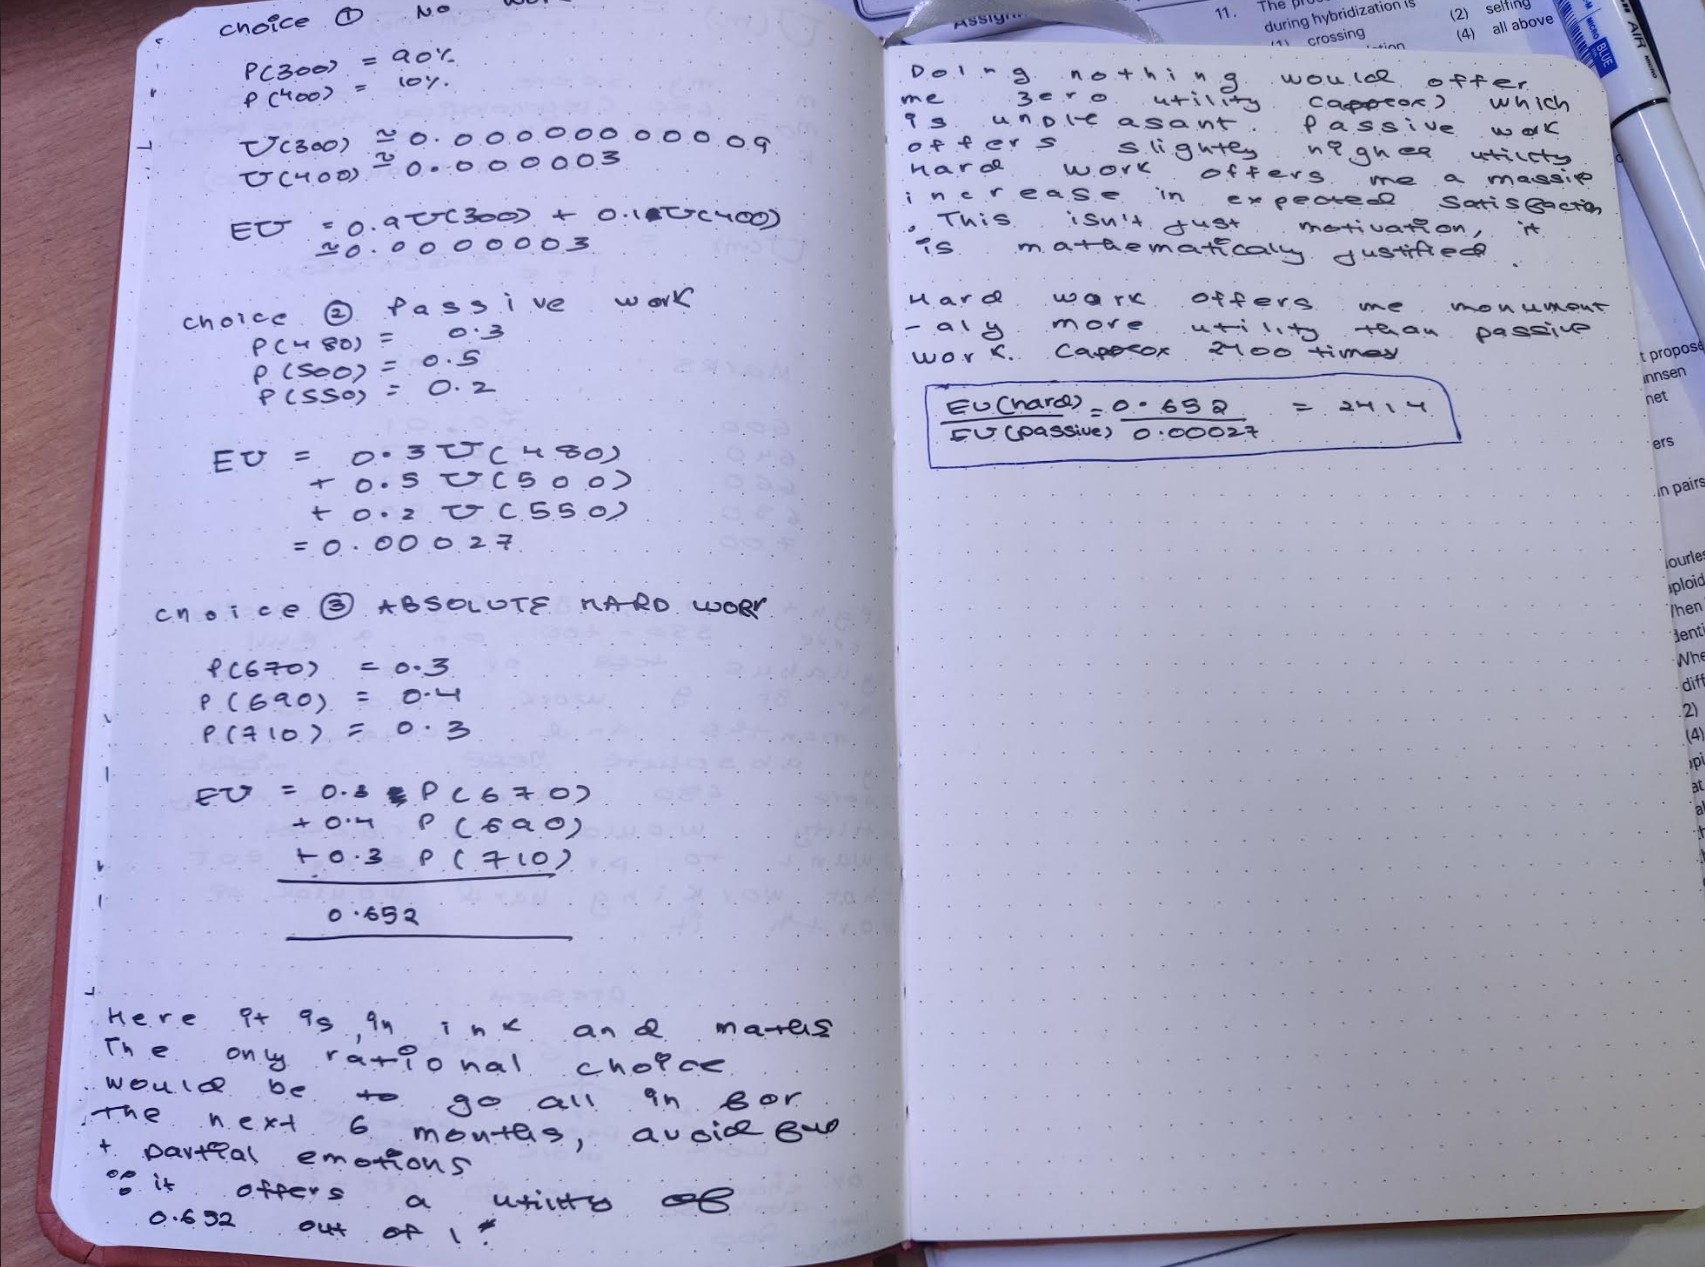 choice ① No
P(300) = 90%
P(400) = 10%.
U(300) ≈ 0.00000000009
U(400) ≈ 0.000003
EU = 0.9U(300) + 0.1U(400)
≈ 0.0000003
choice ② Passive work
P(480) = 0.3
P(500) = 0.5
P(550) = 0.2
EU = 0.3U(480)
+ 0.5 U(500)
+ 0.2 U(550)
= 0.00027
choice ③ ABSOLUTE HARD WORK
P(670) = 0.3
P(690) = 0.4
P(710) = 0.3
EU = 0.3 P(670)
+ 0.4 P(690)
+ 0.3 P(710)
0.652
Here it is, in ink and maths
The only rational choice
would be to go all in for
the next 6 months, avoid
+ partial emotions
∵ it offers a utility of
0.652 out of 1
Doing nothing would offer
me zero utility (approx) which
is unpleasant. Passive work
offers slightly higher utility
Hard work offers me a massive
increase in expected satisfaction
. This isn't just motivation, it
is mathematically justified.
Hard work offers me monument
-aly more utility than passive
work. (approx 2400 times)
EU(hard) / EU(passive) = 0.652 / 0.00027 = 2414
Assign
11. The
during hybridization is
(1) crossing
(2) selfing
(4) all above
AIR
BLUE
t propose
nnsen
net
ers
in pairs